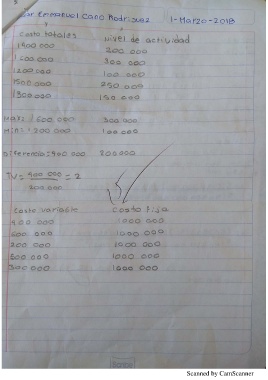 Emmanuel Cano Rodriguez 1-Marzo-2018
Costo totales Nivel de actividad
1400 000 200 000
1 600 000 300 000
1200 000 100 000
1500 000 250 000
1300 000 150 000
1 600 000 300 000
1 200 000 100 000
Diferencia = 400 000 200 000
400 000 = 2
200 000
Costo variable Costo fijo
400 000 1000 000
600 000 1000 000
200 000 1000 000
500 000 1000 000
300 000 1000 000
Scanned by CamScanner